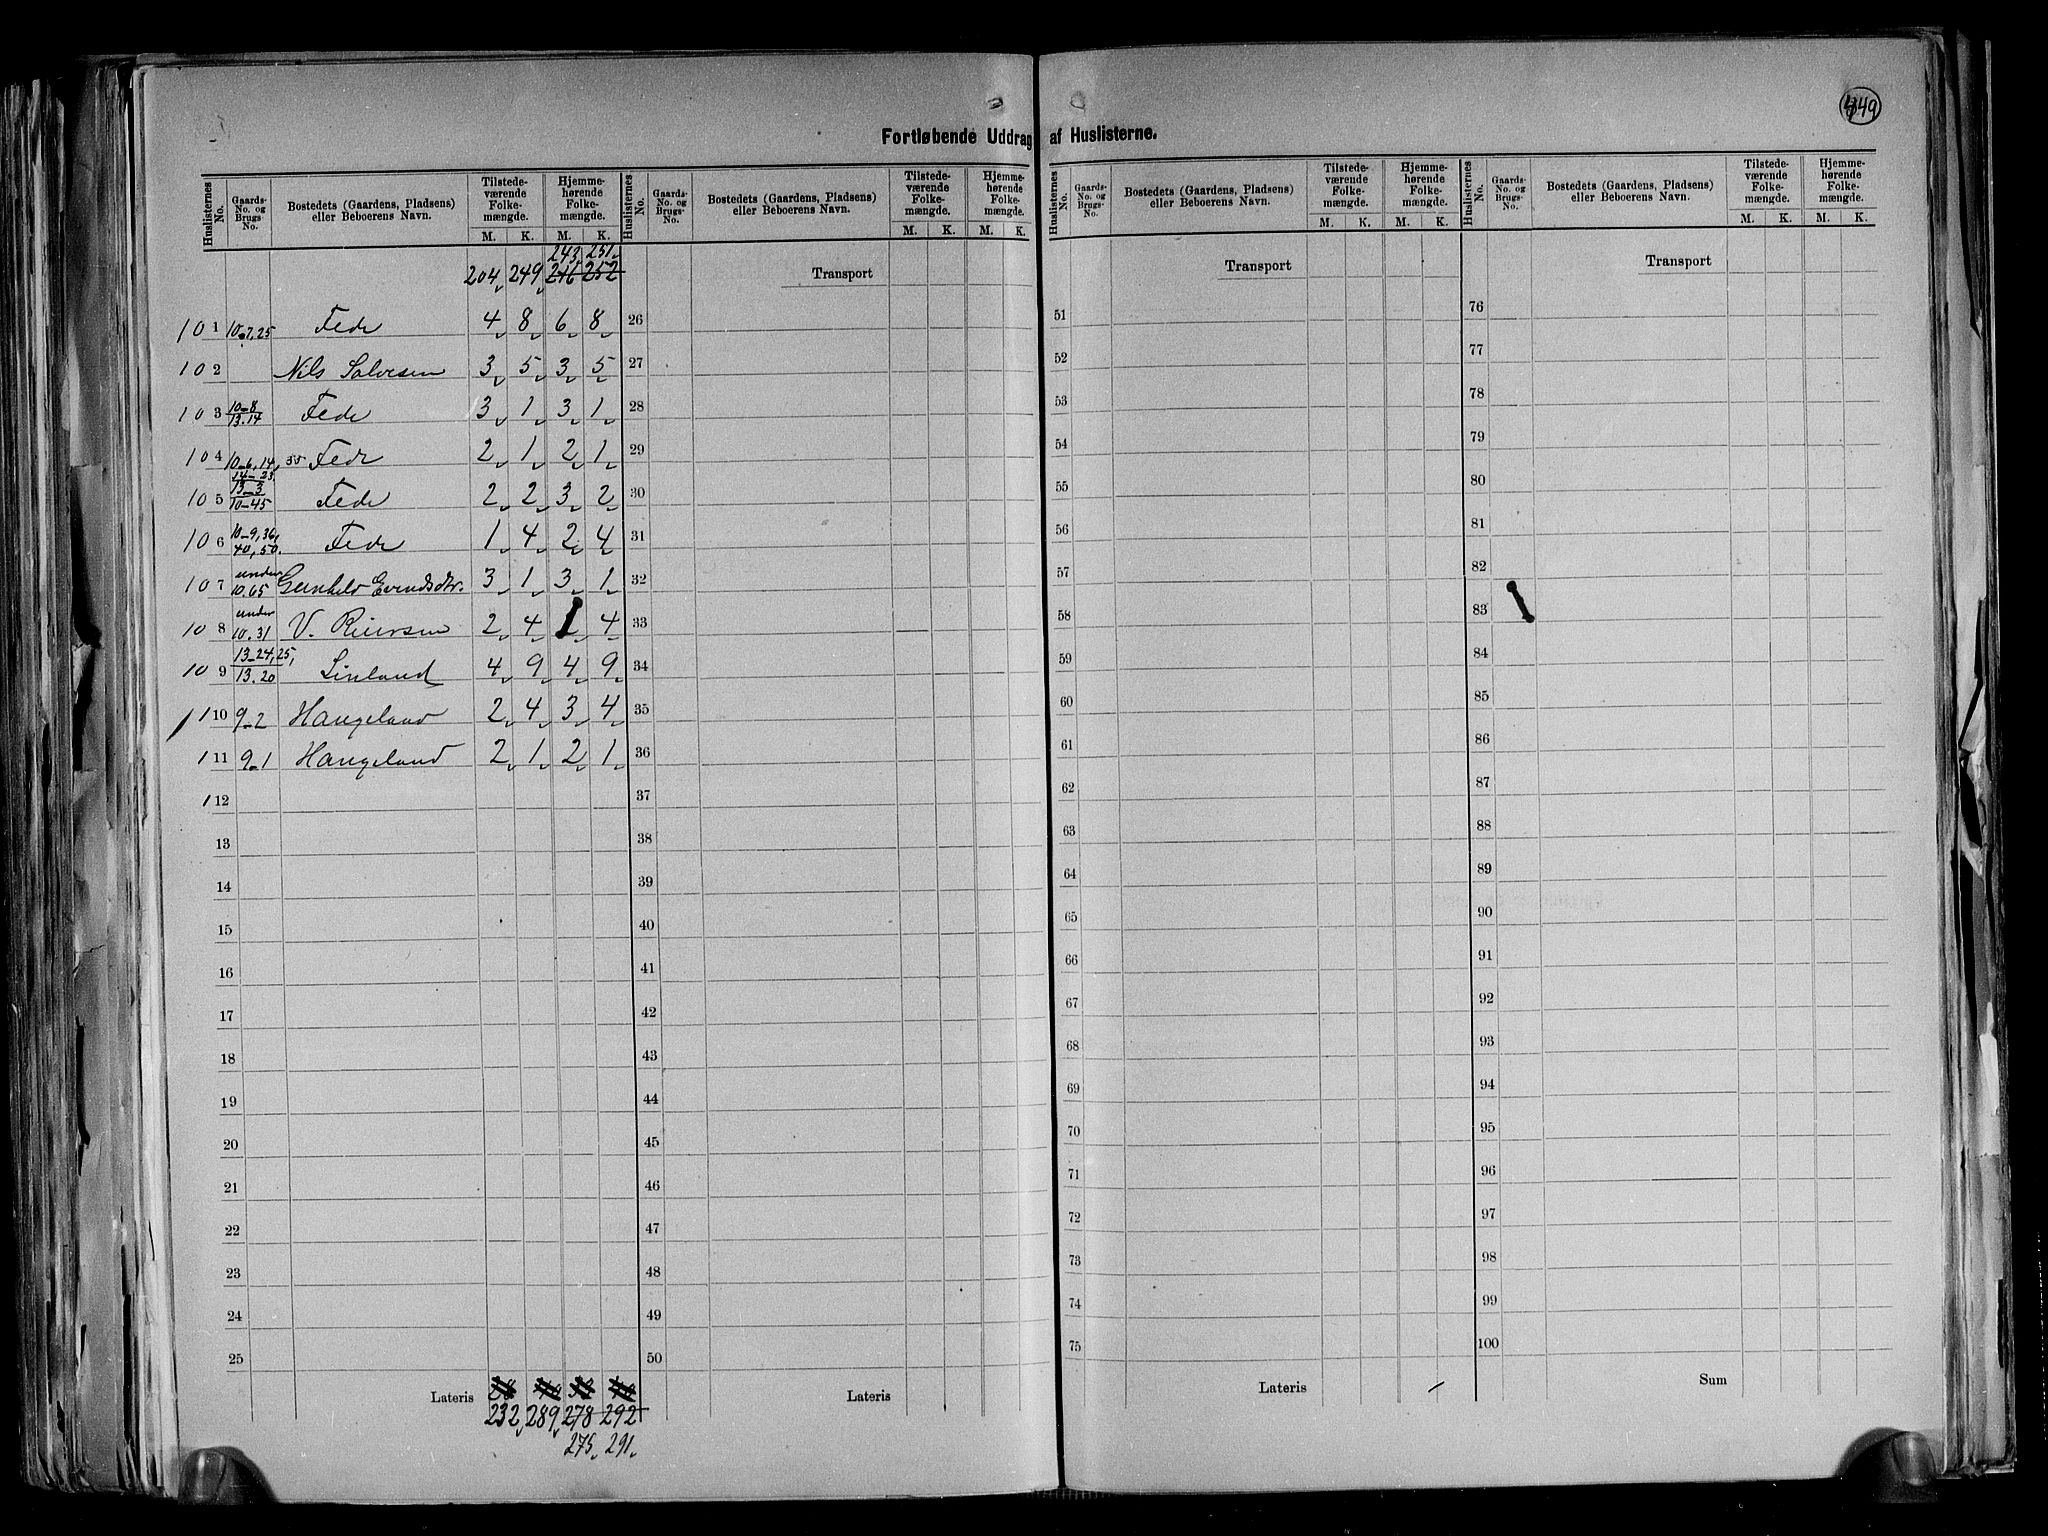 449
Fortløbende Uddrag af Huslisterne.
Huslisternes No. | Gaards-No. og Brugs-No. | Bostedets (Gaardens, Pladsens) eller Beboerens Navn. | Tilstedeværende Folkemængde. M. K. | Hjemmehørende Folkemængde. M. K.
Huslisternes No. | Gaards-No. og Brugs-No. | Bostedets (Gaardens, Pladsens) eller Beboerens Navn. | Tilstedeværende Folkemængde. M. K. | Hjemmehørende Folkemængde. M. K.
Huslisternes No. | Gaards-No. og Brugs-No. | Bostedets (Gaardens, Pladsens) eller Beboerens Navn. | Tilstedeværende Folkemængde. M. K. | Hjemmehørende Folkemængde. M. K.
Huslisternes No. | Gaards-No. og Brugs-No. | Bostedets (Gaardens, Pladsens) eller Beboerens Navn. | Tilstedeværende Folkemængde. M. K. | Hjemmehørende Folkemængde. M. K.
243 251
204 249 246 252 Transport Transport Transport
101 10-7,25 Fede 4 8 6 8 26 51 76
102 Nils Salvesen 3 5 3 5 27 52 77
103 10-8 13.14 Fede 3 1 3 1 28 53 78
104 10-6,14, 35 Fede 2 1 2 1 29 54 79
105 14-23. 13-3 10-45 Fede 2 2 3 2 30 55 80
106 10-9,36, 40,50. Fede 1 4 2 4 31 56 81
107 under 10.65 Gunhild Evindsdtr. 3 1 3 1 32 57 82
108 under 10.31 V. 2 4 4 33 58 83
109 13-24,25, 13.20 Sinland 4 9 4 9 34 59 84
110 9-2 Haugeland 2 4 3 4 35 60 85
111 9-1 Haugeland 2 1 2 1 36 61 86
112 37 62 87
13 38 63 88
14 39 64 89
15 40 65 90
16 41 66 91
17 42 67 92
18 43 68 93
19 44 69 94
20 45 70 95
21 46 71 96
22 47 72 97
23 48 73 98
24 49 74 99
25 50 75 100
Lateris Lateris Lateris Sum
232 289 278 292
275 291